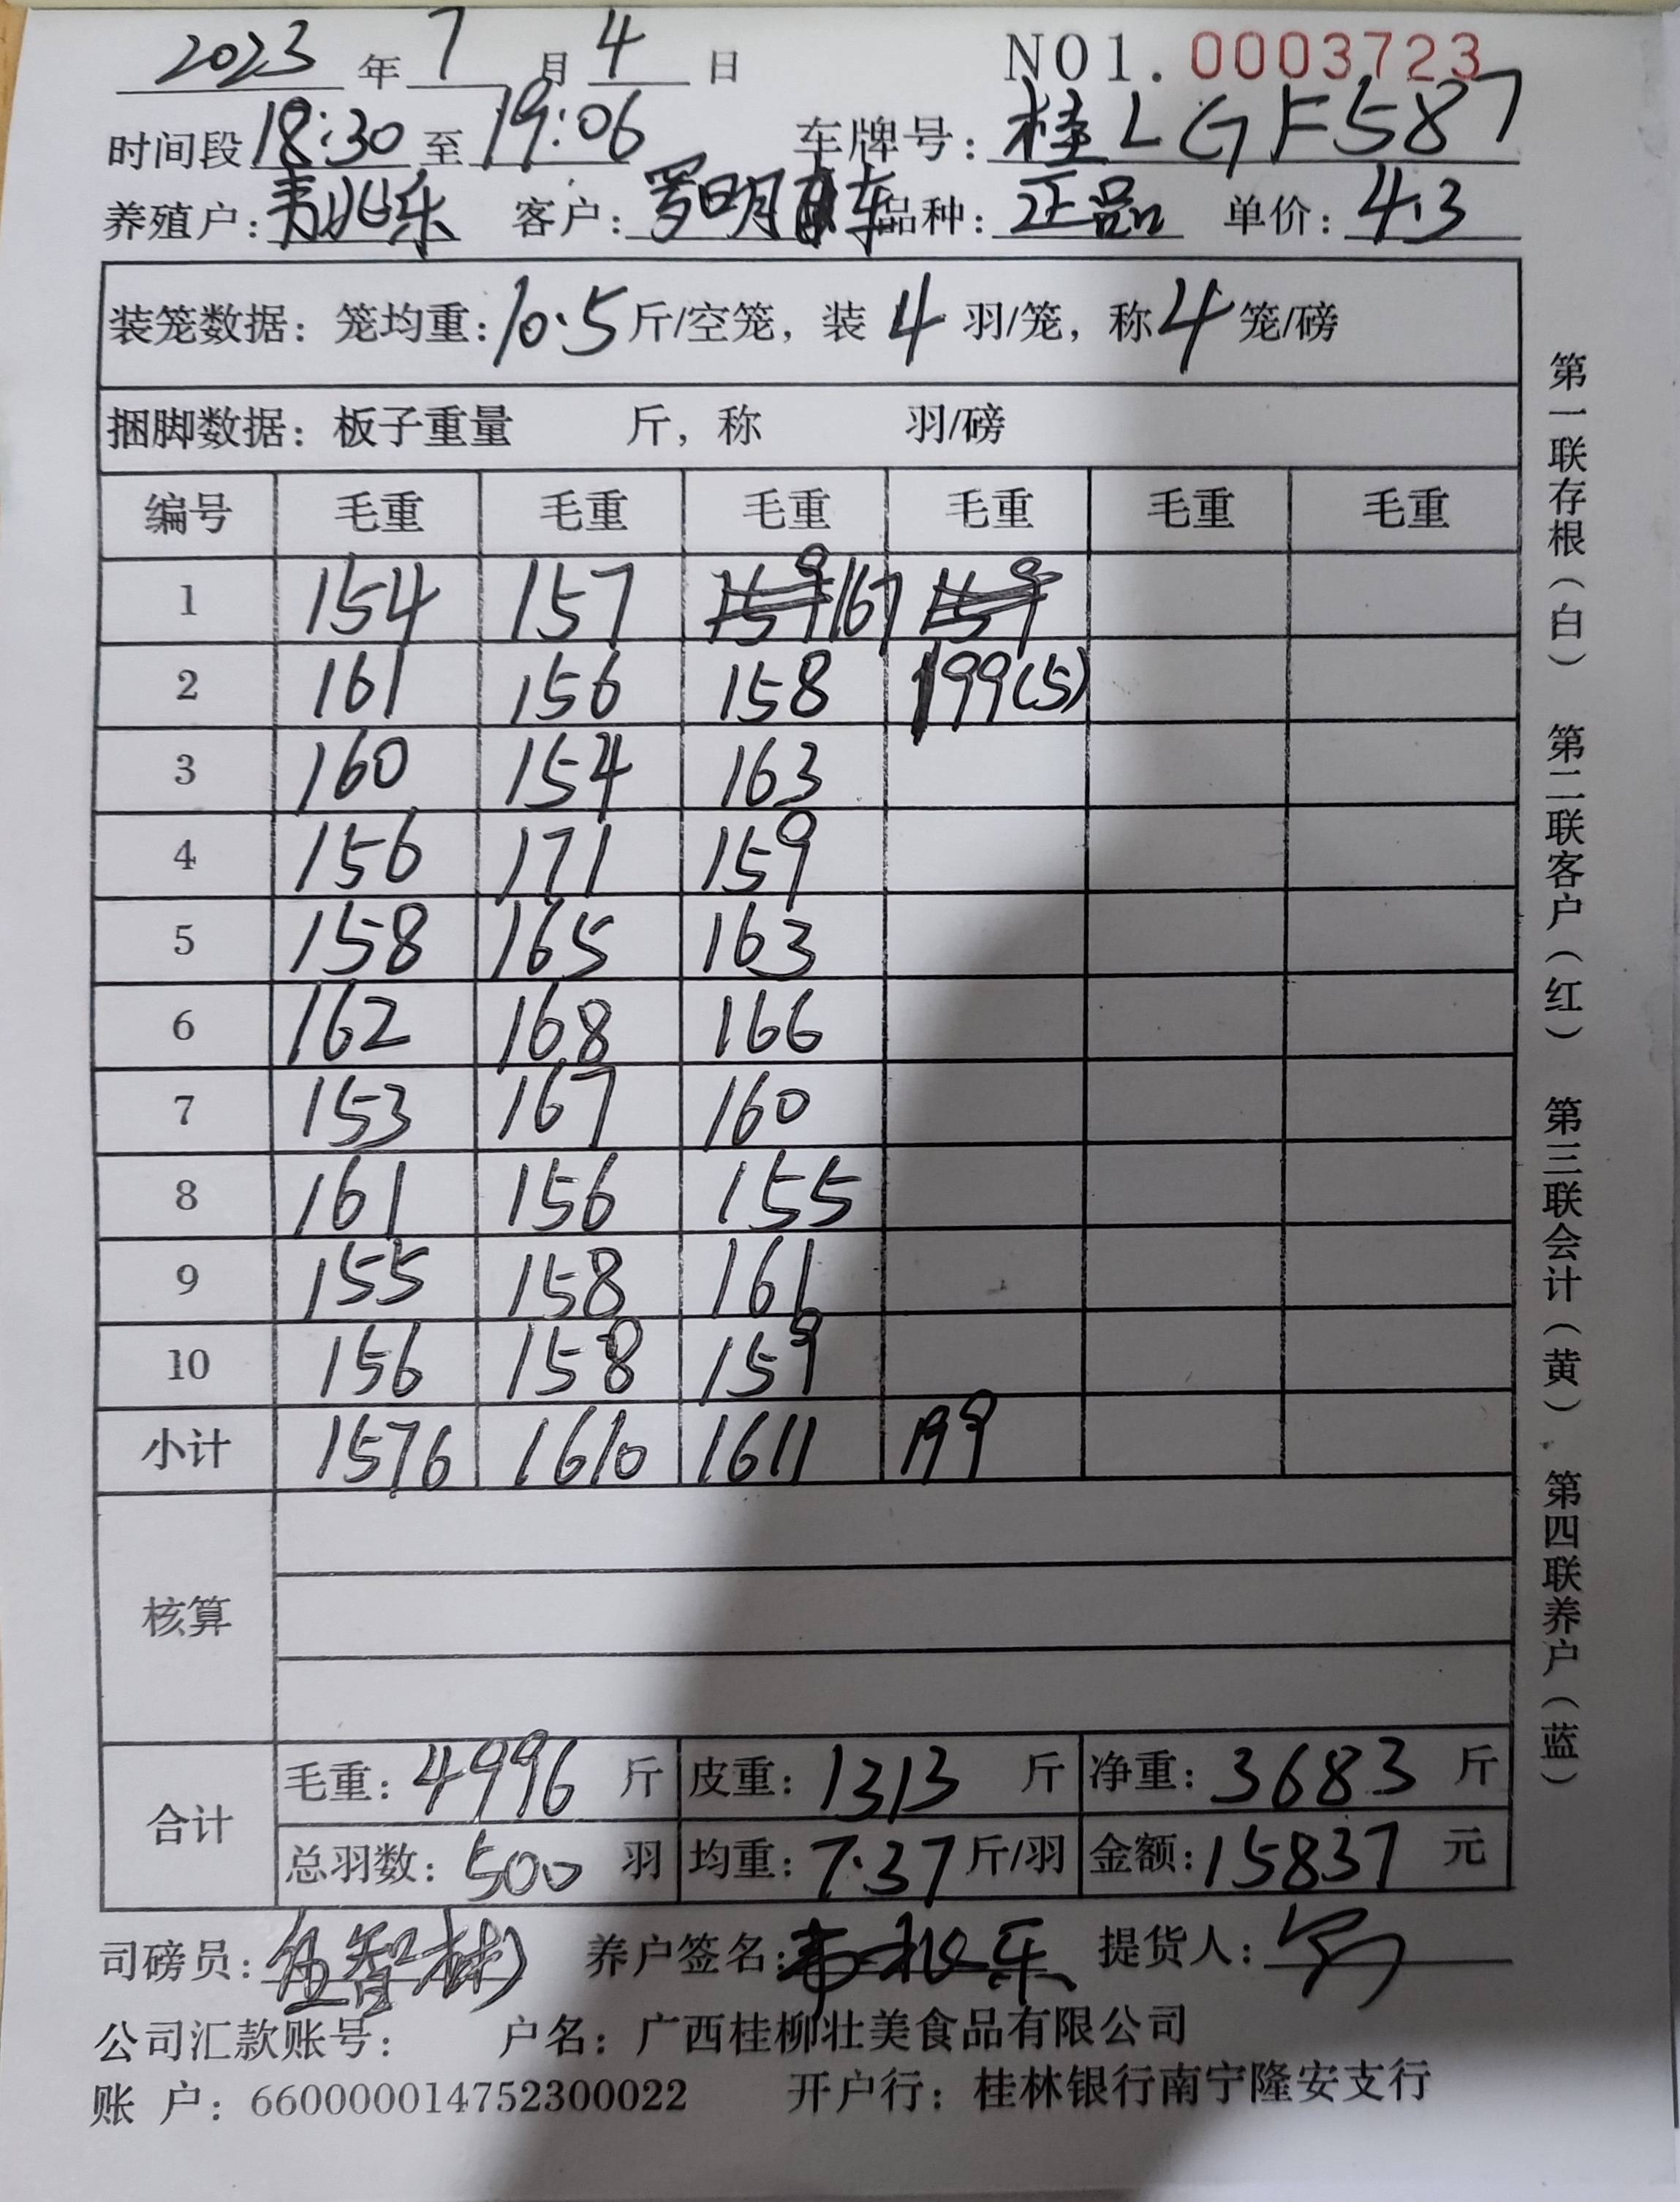 2023 年 7 月 4 日 NO1. 0003723
时间段 18:30 至 19:06 车牌号: 桂LGF587
养殖户: 韦兆乐 客户: 罗明 车 品种: 正品 单价: 4.3
装笼数据: 笼均重: 10.5 斤/空笼, 装 4 羽/笼, 称 4 笼/磅
捆脚数据: 板子重量 斤, 称 羽/磅
编号 毛重 毛重 毛重 毛重 毛重 毛重
1 154 157 159 167 159
2 161 156 158 199(5)
3 160 154 163
4 156 171 159
5 158 165 163
6 162 168 166
7 153 167 160
8 161 156 155
9 155 158 161
10 156 158 159
小计 1576 1610 1611 199
核算
合计
毛重: 4996 斤 皮重: 1313 斤 净重: 3683 斤
总羽数: 500 羽 均重: 7.37 斤/羽 金额: 15837 元
司磅员: 伍智彬 养户签名: 韦兆乐 提货人:
公司汇款账号: 户名: 广西桂柳壮美食品有限公司
账 户: 660000014752300022 开户行: 桂林银行南宁隆安支行
第一联存根(白) 第二联客户(红) 第三联会计(黄) 第四联养户(蓝)